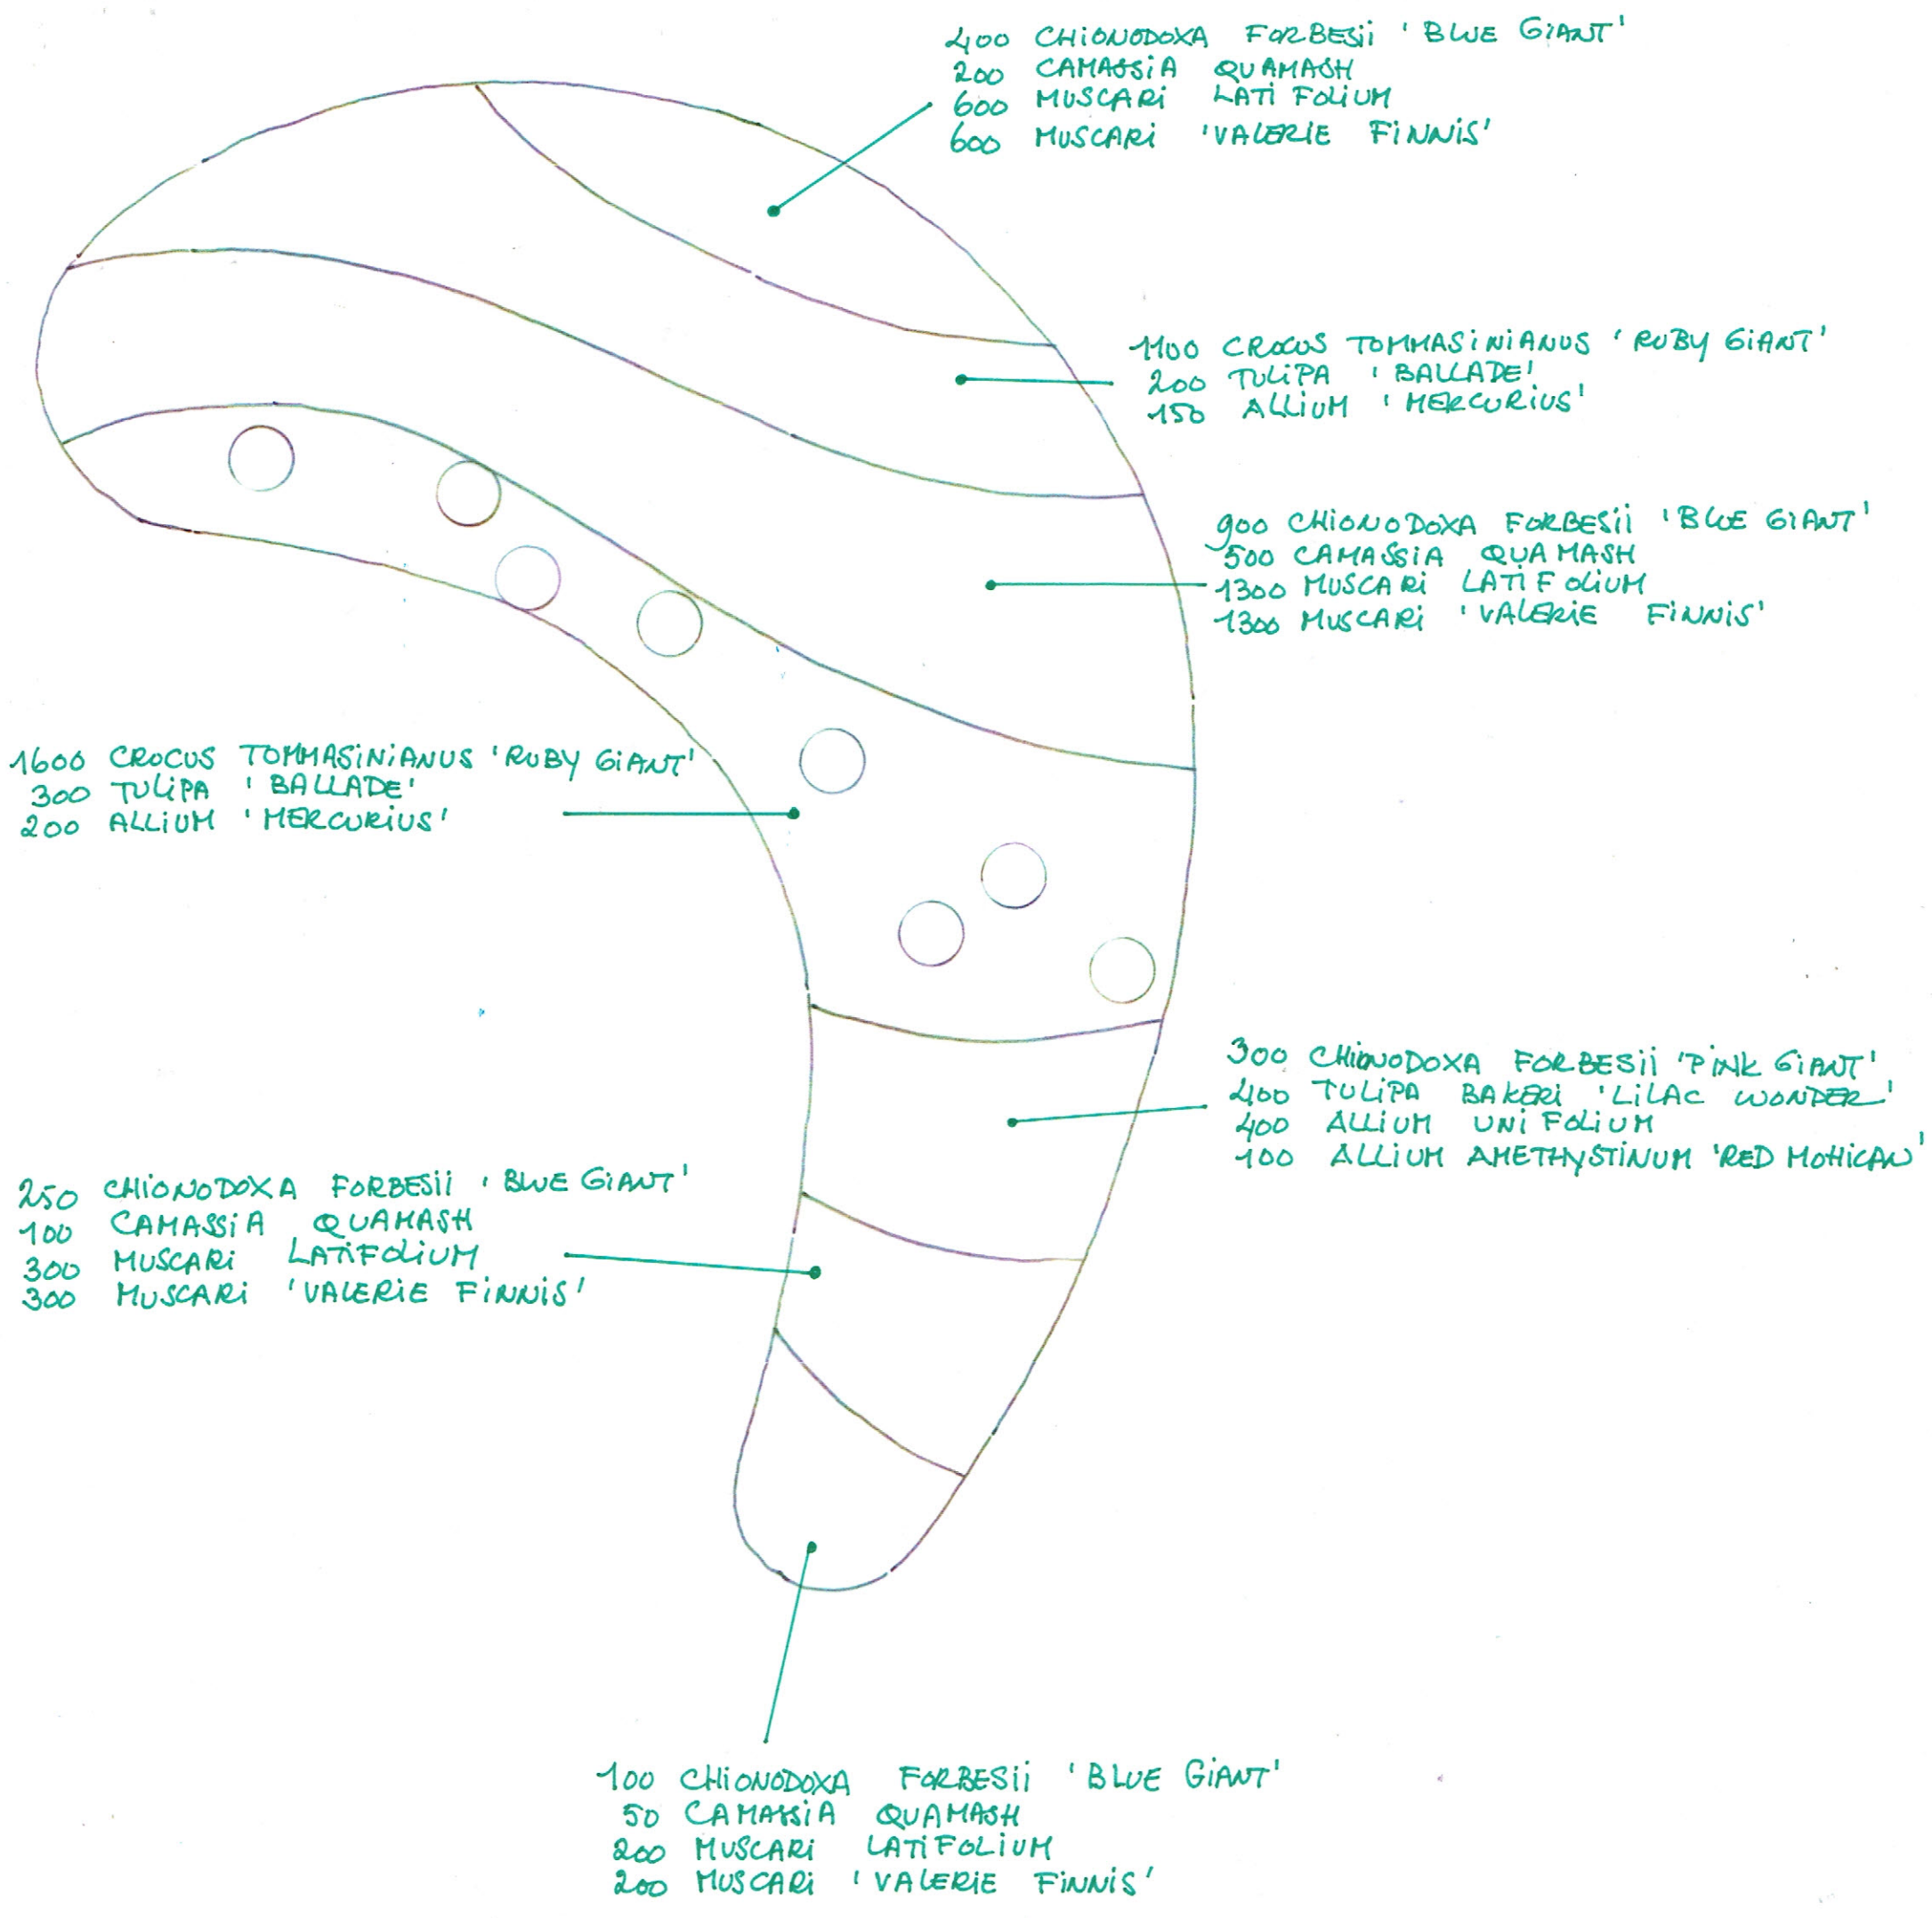 400 CHIONODOXA FORBESII 'BLUE GIANT'
200 CAMASSIA QUAMASH
600 MUSCARI LATIFOLIUM
600 MUSCARI 'VALERIE FINNIS'
1100 CROCUS TOMMASINIANUS 'RUBY GIANT'
200 TULIPA 'BALLADE'
150 ALLIUM 'MERCURIUS'
900 CHIONODOXA FORBESII 'BLUE GIANT'
500 CAMASSIA QUAMASH
1300 MUSCARI LATIFOLIUM
1300 MUSCARI 'VALERIE FINNIS'
1600 CROCUS TOMMASINIANUS 'RUBY GIANT'
300 TULIPA 'BALLADE'
200 ALLIUM 'MERCURIUS'
300 CHIONODOXA FORBESII 'PINK GIANT'
400 TULIPA BAKERI 'LILAC WONDER'
400 ALLIUM UNIFOLIUM
100 ALLIUM AMETHYSTINUM 'RED MOHICAN'
250 CHIONODOXA FORBESII 'BLUE GIANT'
100 CAMASSIA QUAMASH
300 MUSCARI LATIFOLIUM
300 MUSCARI 'VALERIE FINNIS'
100 CHIONODOXA FORBESII 'BLUE GIANT'
50 CAMASSIA QUAMASH
200 MUSCARI LATIFOLIUM
200 MUSCARI 'VALERIE FINNIS'